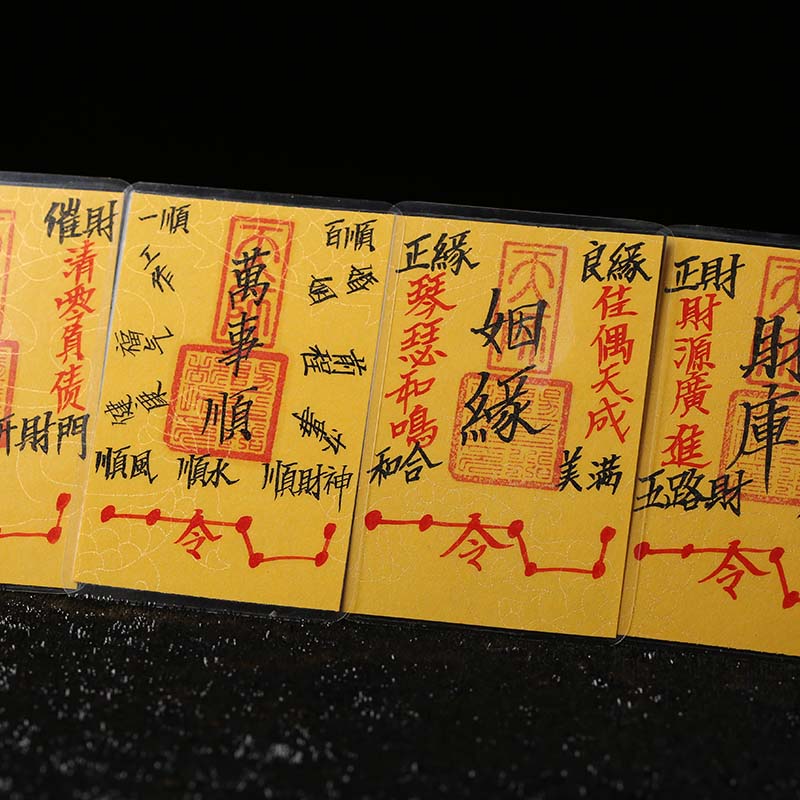 催財
清零負债
財門
令
萬事順
一順
百順
工作
婚姻
福气
前程
健康
事業
順風
順水
順財神
令
姻緣
正緣
良緣
琴瑟和鳴
佳偶天成
和合
美满
令
財庫
正財
財源廣進
五路財
令